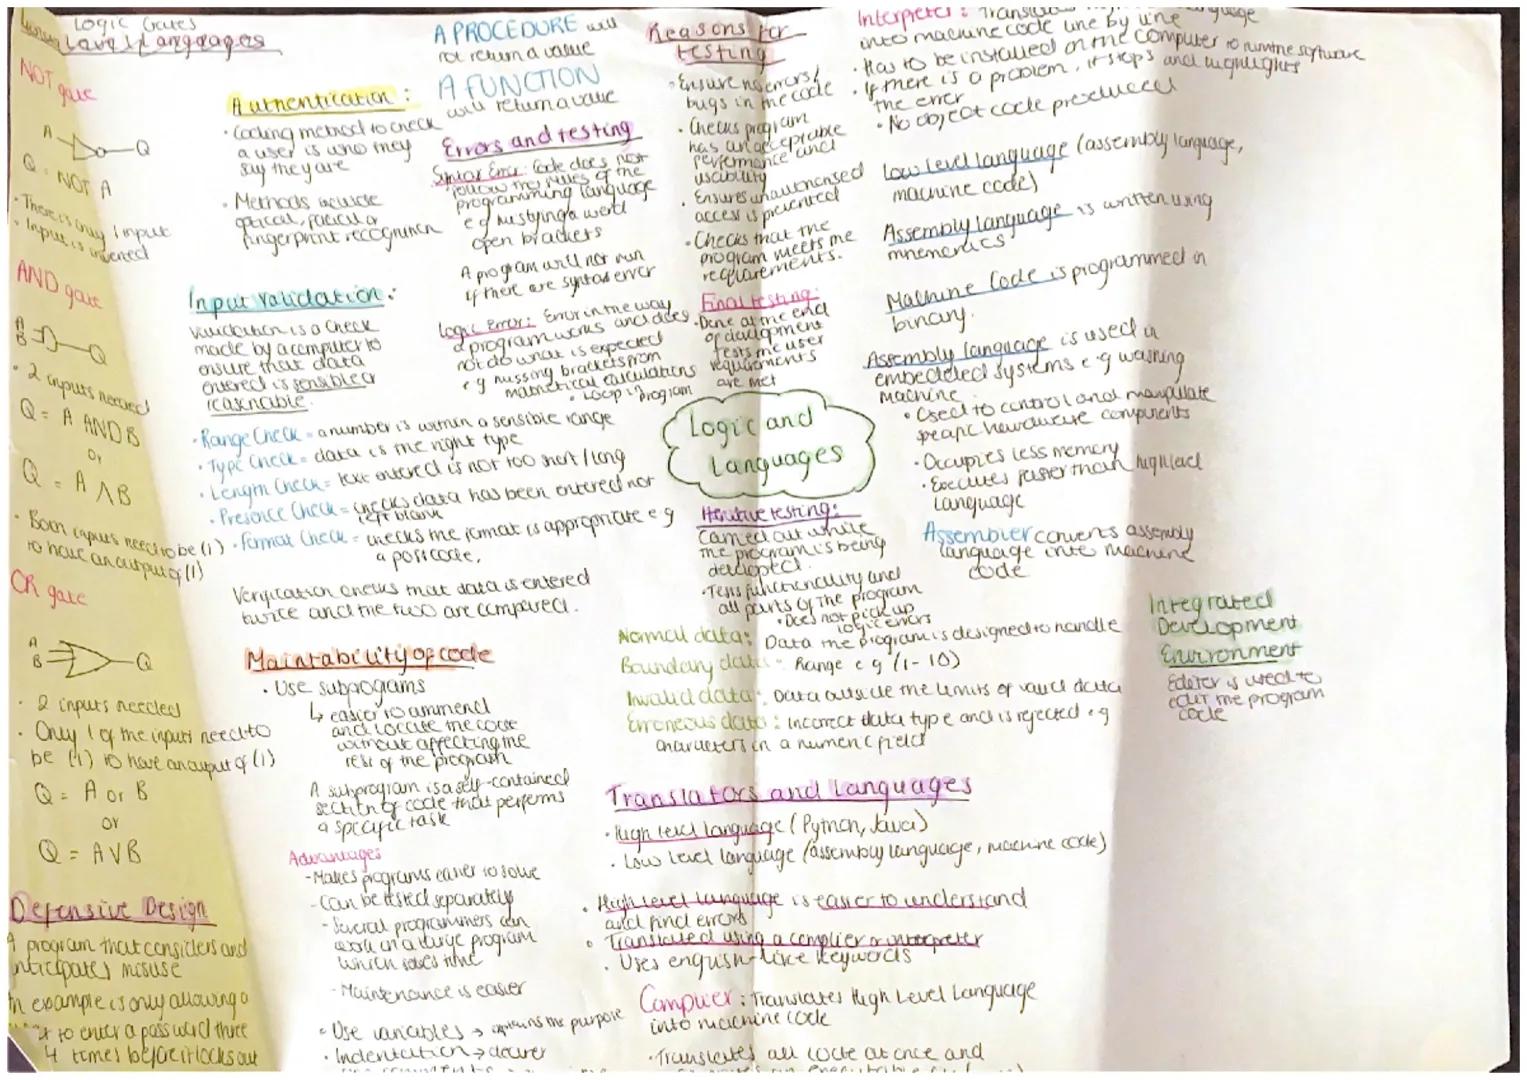 Logic Gates
Languages
NOT gate
A
Q
Q = NOT A
• There is only 1 input
• Input is inverted
AND gate
A
B
Q
• 2 inputs needed
Q = A AND B
or
Q = A ∧ B
• Both inputs need to be (1)
to have an output of (1)
OR gate
A
B
Q
• 2 inputs needed
• Only 1 of the inputs need to
be (1) to have an output of (1)
Q = A or B
or
Q = A V B
Defensive Design
A program that considers and
anticipates misuse
An example is only allowing a
user to enter a password three
4 times before it locks out
Authentication:
• Coding method to check
a user is who they
say they are
• Methods include
optical, facial or
fingerprint recognition
Input validation:
Validation is a check
made by a computer to
ensure that data
entered is sensible or
reasonable.
• Range Check = a number is within a sensible range
• Type Check = data is the right type
• Length Check = text entered is not too short / long
• Presence Check = checks data has been entered not
left blank
• Format Check = checks the format is appropriate e g
a postcode.
Verification checks that data is entered
twice and the two are compared.
Maintability of code
• Use subprograms
↳ easier to ammend
and locate the code
without affecting the
rest of the program
A subprogram is a self-contained
section of code that performs
a specific task
Advantages
- Makes programs easier to solve
- Can be tested separately
- Several programmers can
work on a large program
which saves time
- Maintenance is easier
• Use variables → explains the purpose
• Indentation → clearer
A PROCEDURE will
not return a value
A FUNCTION
will return a value
Errors and testing
Syntax Error: Code does not
follow the rules of the
programming language
e g
open brackets
A program will not run
if there are syntax error
Logic Error: Error in the way
a program works and does
not do what is expected
e g missing brackets from
mathetical calculations
• Loop in program
Reasons for
testing
• Ensure no errors/
bugs in the code
• Checks program
has an acceptable
performance and
usability
• Ensures unauthorised
access is prevented
• Checks that the
program meets the
requirements.
Final testing:
• Done at the end
of development
tests the user
requirements
are met
Logic and
Languages
Iterative testing:
Carried out while
the program is being
developed.
• Tests functionality and
all parts of the program
• Does not pick up
logic errors
Normal data: Data the program is designed to handle
Boundary data = Range e g (1-10)
Invalid data: Data outside the limits of valid data
Erroneous data: incorrect data type and is rejected e g
characters in a numeric field
Translators and Languages
• High level language (Python, Java)
• Low level language (assembly language, machine code)
• High level language is easier to understand
and find errors
• Translated using a complier or interpreter
• Uses english-like keywords
Complier: Translates High Level Language
into machine code
• Translates all code at once and
Interpreter:
into machine code line by line
• Has to be installed on the computer to run the software
• If there is a problem, it stops and highlights
the error
• No object code produced
Low level language (assembly language,
machine code)
Assembly language is written using
mnemonics
Machine Code is programmed in
binary.
Assembly language is used in
embedded systems e g washing
machine
• Used to control and manipulate
hardware components
• Occupies less memory
• Executes faster than high level
language
Assembler converts assembly
language into machine
code
Integrated
Development
Environment
Editor is used to
edit the program
code